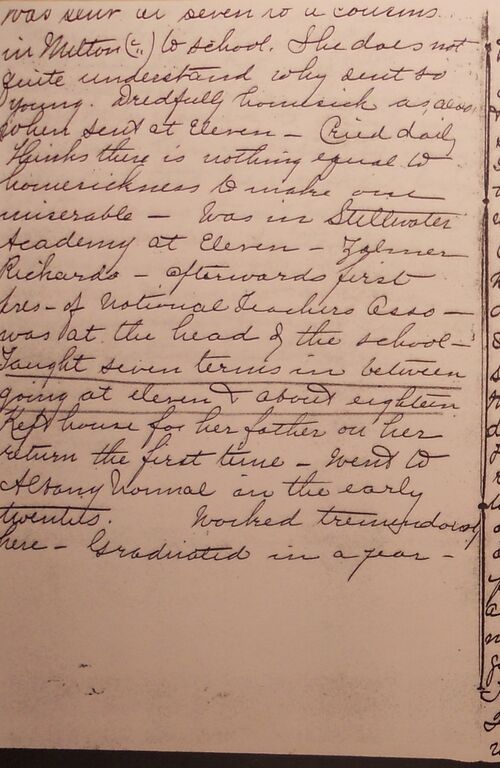 was sent at seven to a cousins
in Milton (?.) to school. She does not
quite understand why sent so
young. Dredfully homesick as, also,
when sent at Eleven – Cried daily
Thinks there is nothing equal to
homesickness to make one
miserable – Was in Stillwater
Academy at Eleven – Zalmer
Richards – afterwards first
pres- of National Teachers Asso –
was at the head of the school –
Taught seven terms in between
going at eleven & about eighteen
Kept house for her father on her
return the first time – Went to
Albany Normal in the early
twenties. Worked tremendously
here – Graduated in a year –